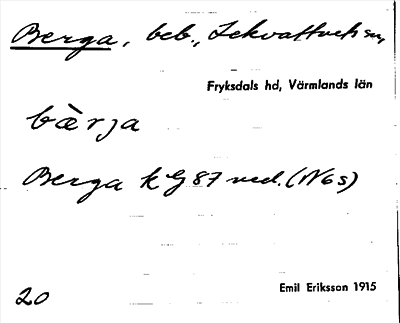 Berga, beb., Lekvattnets sn,
Fryksdals hd, Värmlands län
bàrja
Berga k G 87 ned. (N6s)
20
Emil Eriksson 1915